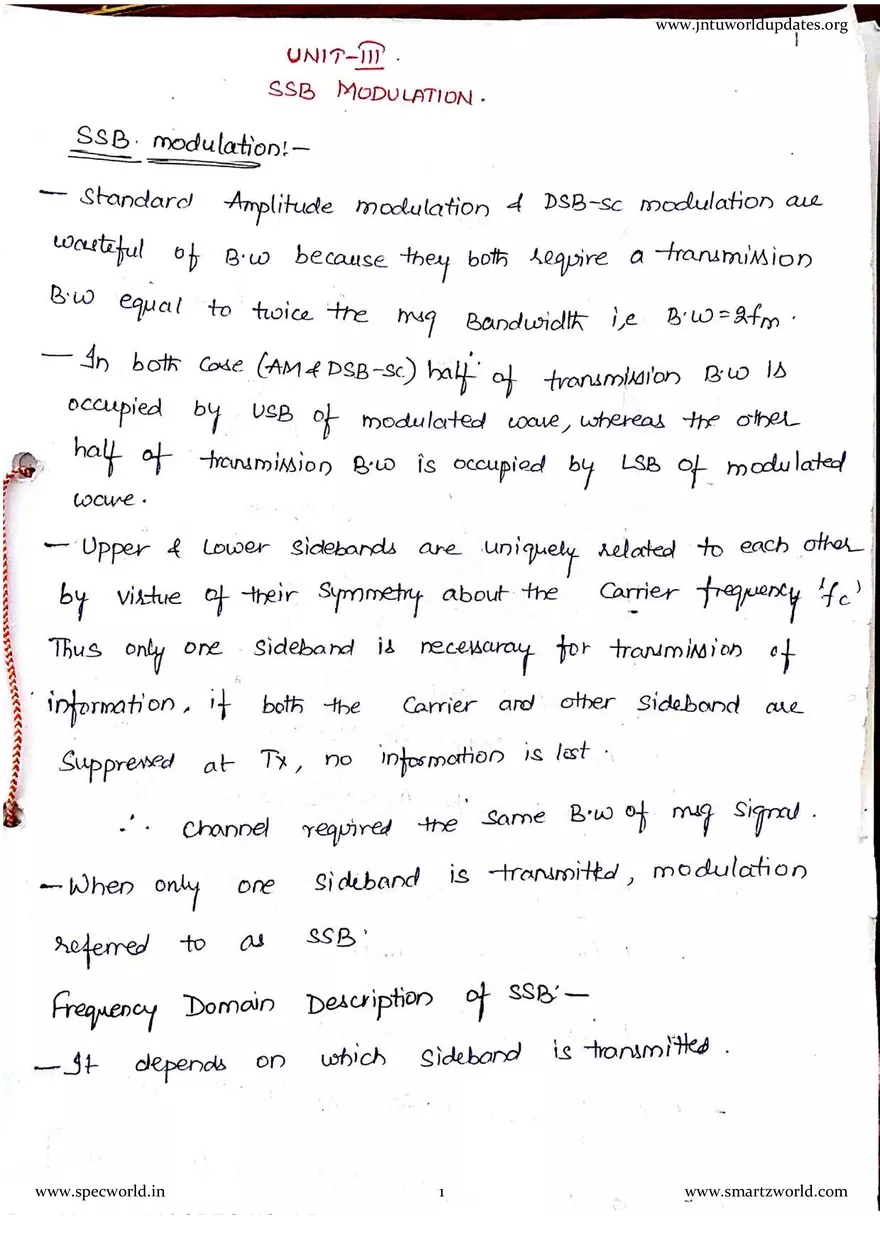 www.jntuworldupdates.org
1
UNIT-III.
SSB MODULATION.
SSB. modulation:-
- Standard Amplitude modulation & DSB-SC modulation are
wasteful of B.W because they both require a transmission
B.W equal to twice the msg Bandwidth i,e B.W=2fm.
- In both Case (AM & DSB-SC) half of transmission B.W is
occupied by USB of modulated wave, whereas the other
half of transmission B.W is occupied by LSB of modulated
wave.
- Upper & Lower sidebands are uniquely related to each other
by virtue of their Symmetry about the Carrier frequency 'fc'
Thus only one sideband is necessaray for transmission of
information, if both the Carrier and other Sideband are
Suppressed at Tx, no information is lost.
∴ Channel required the same B.W of msg Signal.
- When only one sideband is transmitted, modulation
referred to as SSB.
Frequency Domain Description of SSB:-
- It depends on which Sideband is transmitted.
www.specworld.in 1 www.smartzworld.com